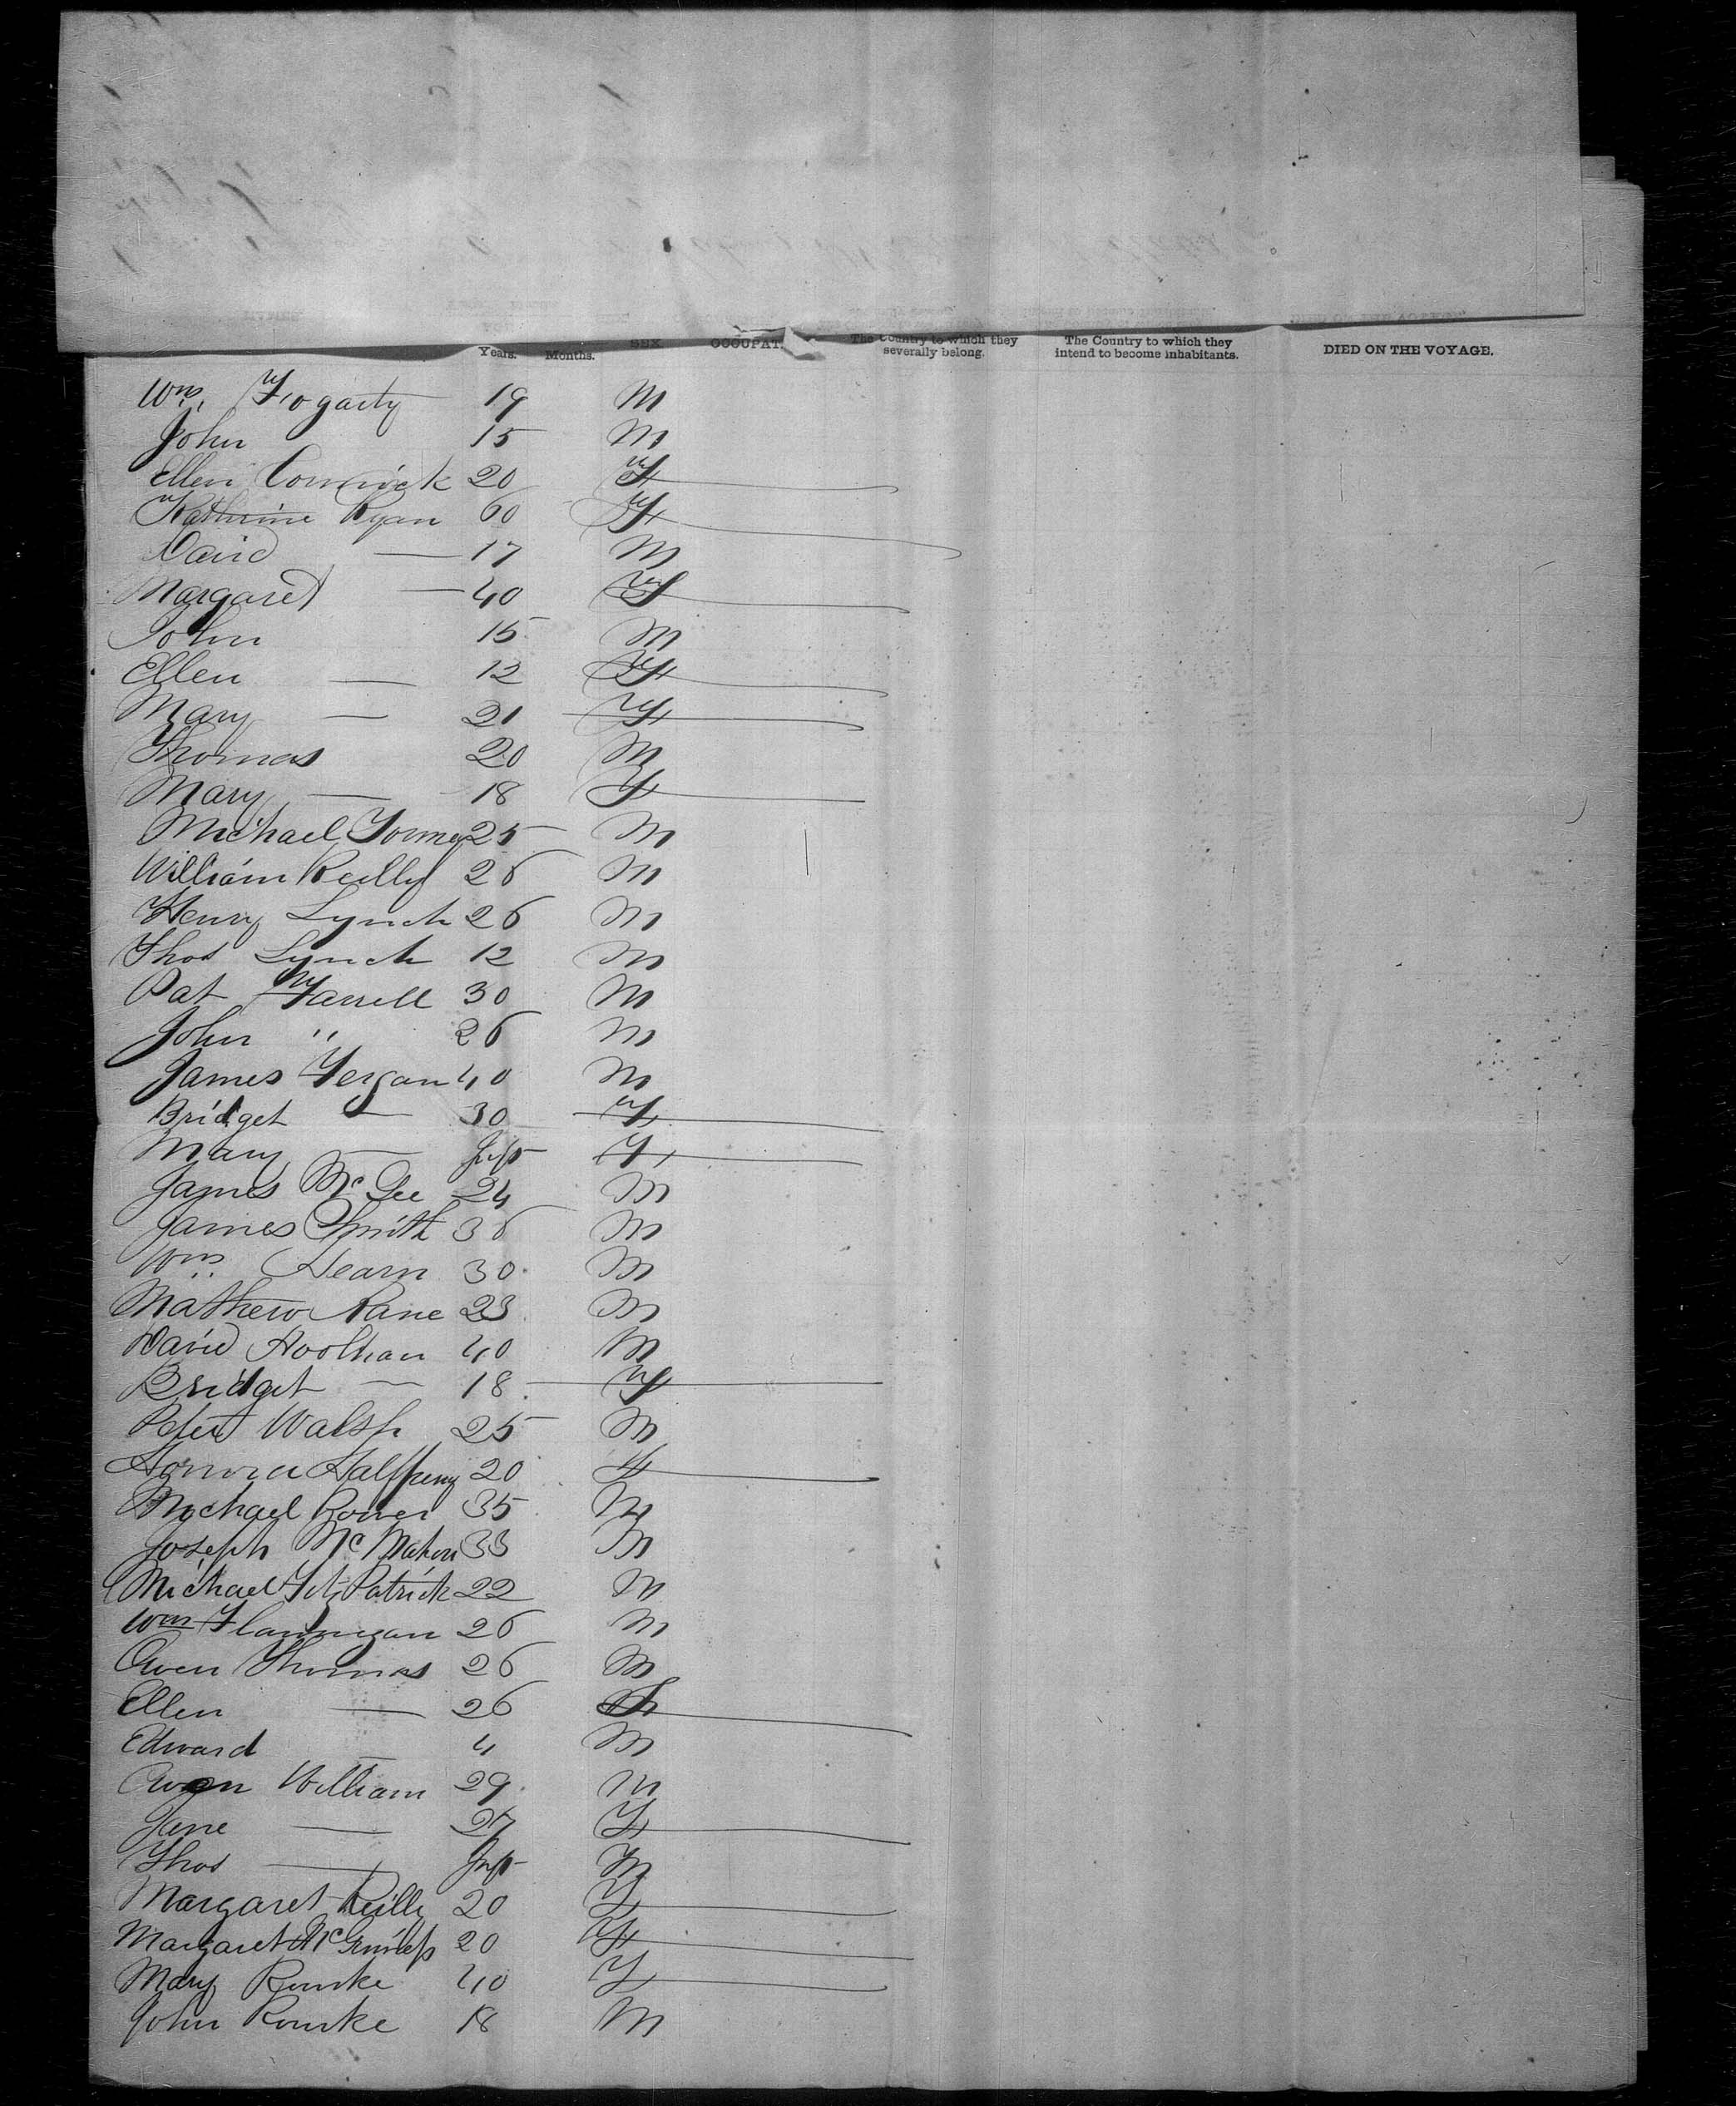 Years. Months. SEX OCCUPAT The Country to which they severally belong. The Country to which they intend to become inhabitants. DIED ON THE VOYAGE.
Wm Fogarty 19 M
John 15 M
Ellen Cormick 20 F
Kathrine Ryan 60 F
David — 17 M
Margaret — 40 F
John 15 M
Ellen — 12 F
Mary — 21 F
Thomas 20 M
Mary — 18 F
Michael 25 M
William Reilly 26 M
Henry Lynch 26 M
Thos Lynch 12 M
Pat Farrell 30 M
John " 26 M
James Fergan 40 M
Bridget — 30 F
Mary — Inft F
James McGee 24 M
James Smith 36 M
Wm Hearn 30 M
Mathew Kane 23 M
David 40 M
Bridget — 18 F
Peter Walsh 25 M
Honora Halfpeny 20 F
Michael Power 35 M
Joseph McMahon 33 M
Michael FitzPatrick 22 M
Wm Flannigan 26 M
Owen Thomas 26 M
Ellen — 26 F
Edward — 4 M
Owen William 29 M
Jane — 27 F
Thos — Inft M
Margaret Reilly 20 F
Margaret 20 F
Mary Rourke 40 F
John Rourke 18 M